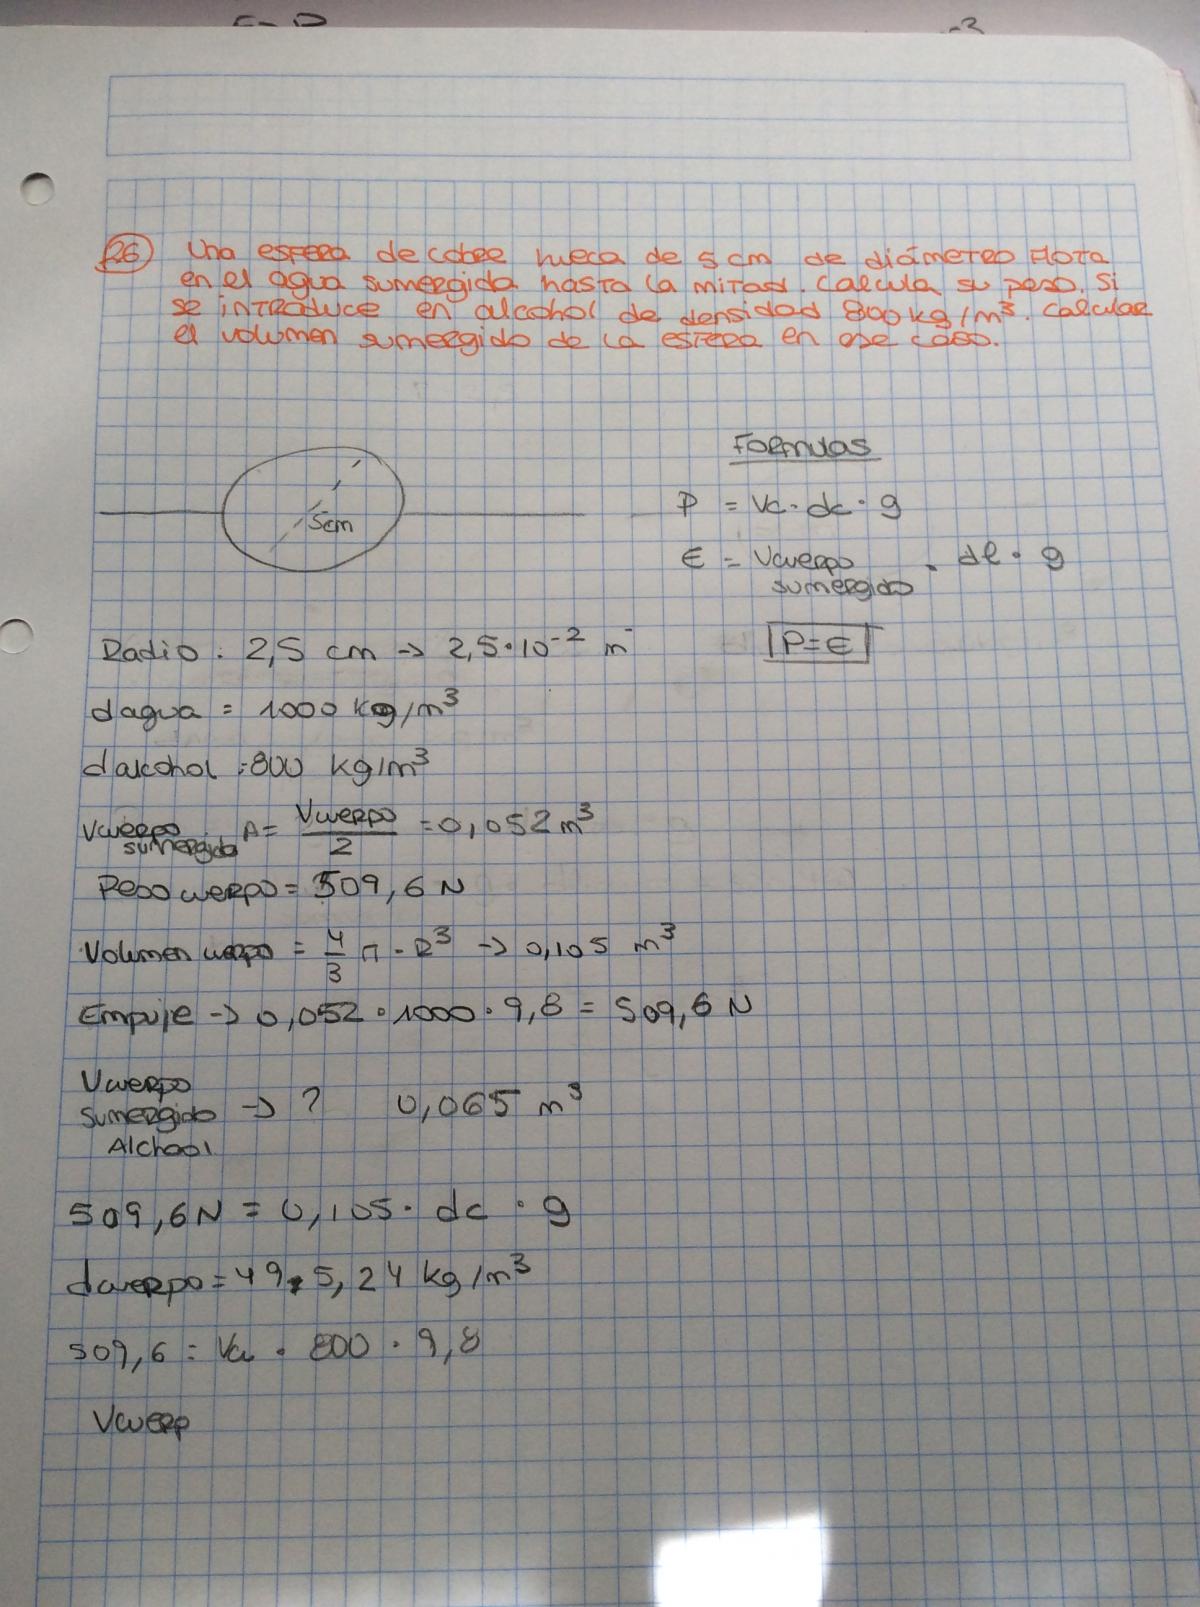 26 Una esfera de cobre hueca de 5 cm de diámetro flota
en el agua sumergida hasta la mitad. Calcula su peso. Si
se introduce en alcohol de densidad 800 kg/m³. Calcular
el volumen sumergido de la esfera en ese caso.
Formulas
P = Vc · dc · g
5cm
E = Vcuerpo sumergido · dl · g
Radio: 2,5 cm → 2,5·10⁻² m
P=E
dagua = 1000 kg/m³
dalcohol: 800 kg/m³
Vcuerpo sumergida A = Vcuerpo/2 = 0,052 m³
Peso cuerpo = 509,6 N
Volumen cuerpo = 4/3 π · R³ → 0,105 m³
Empuje → 0,052 · 1000 · 9,8 = 509,6 N
Vcuerpo
sumergido → ? 0,065 m³
Alchool
509,6 N = 0,105 · dc · g
dcuerpo = 495,24 kg/m³
509,6 = Vc · 800 · 9,8
Vcuerp